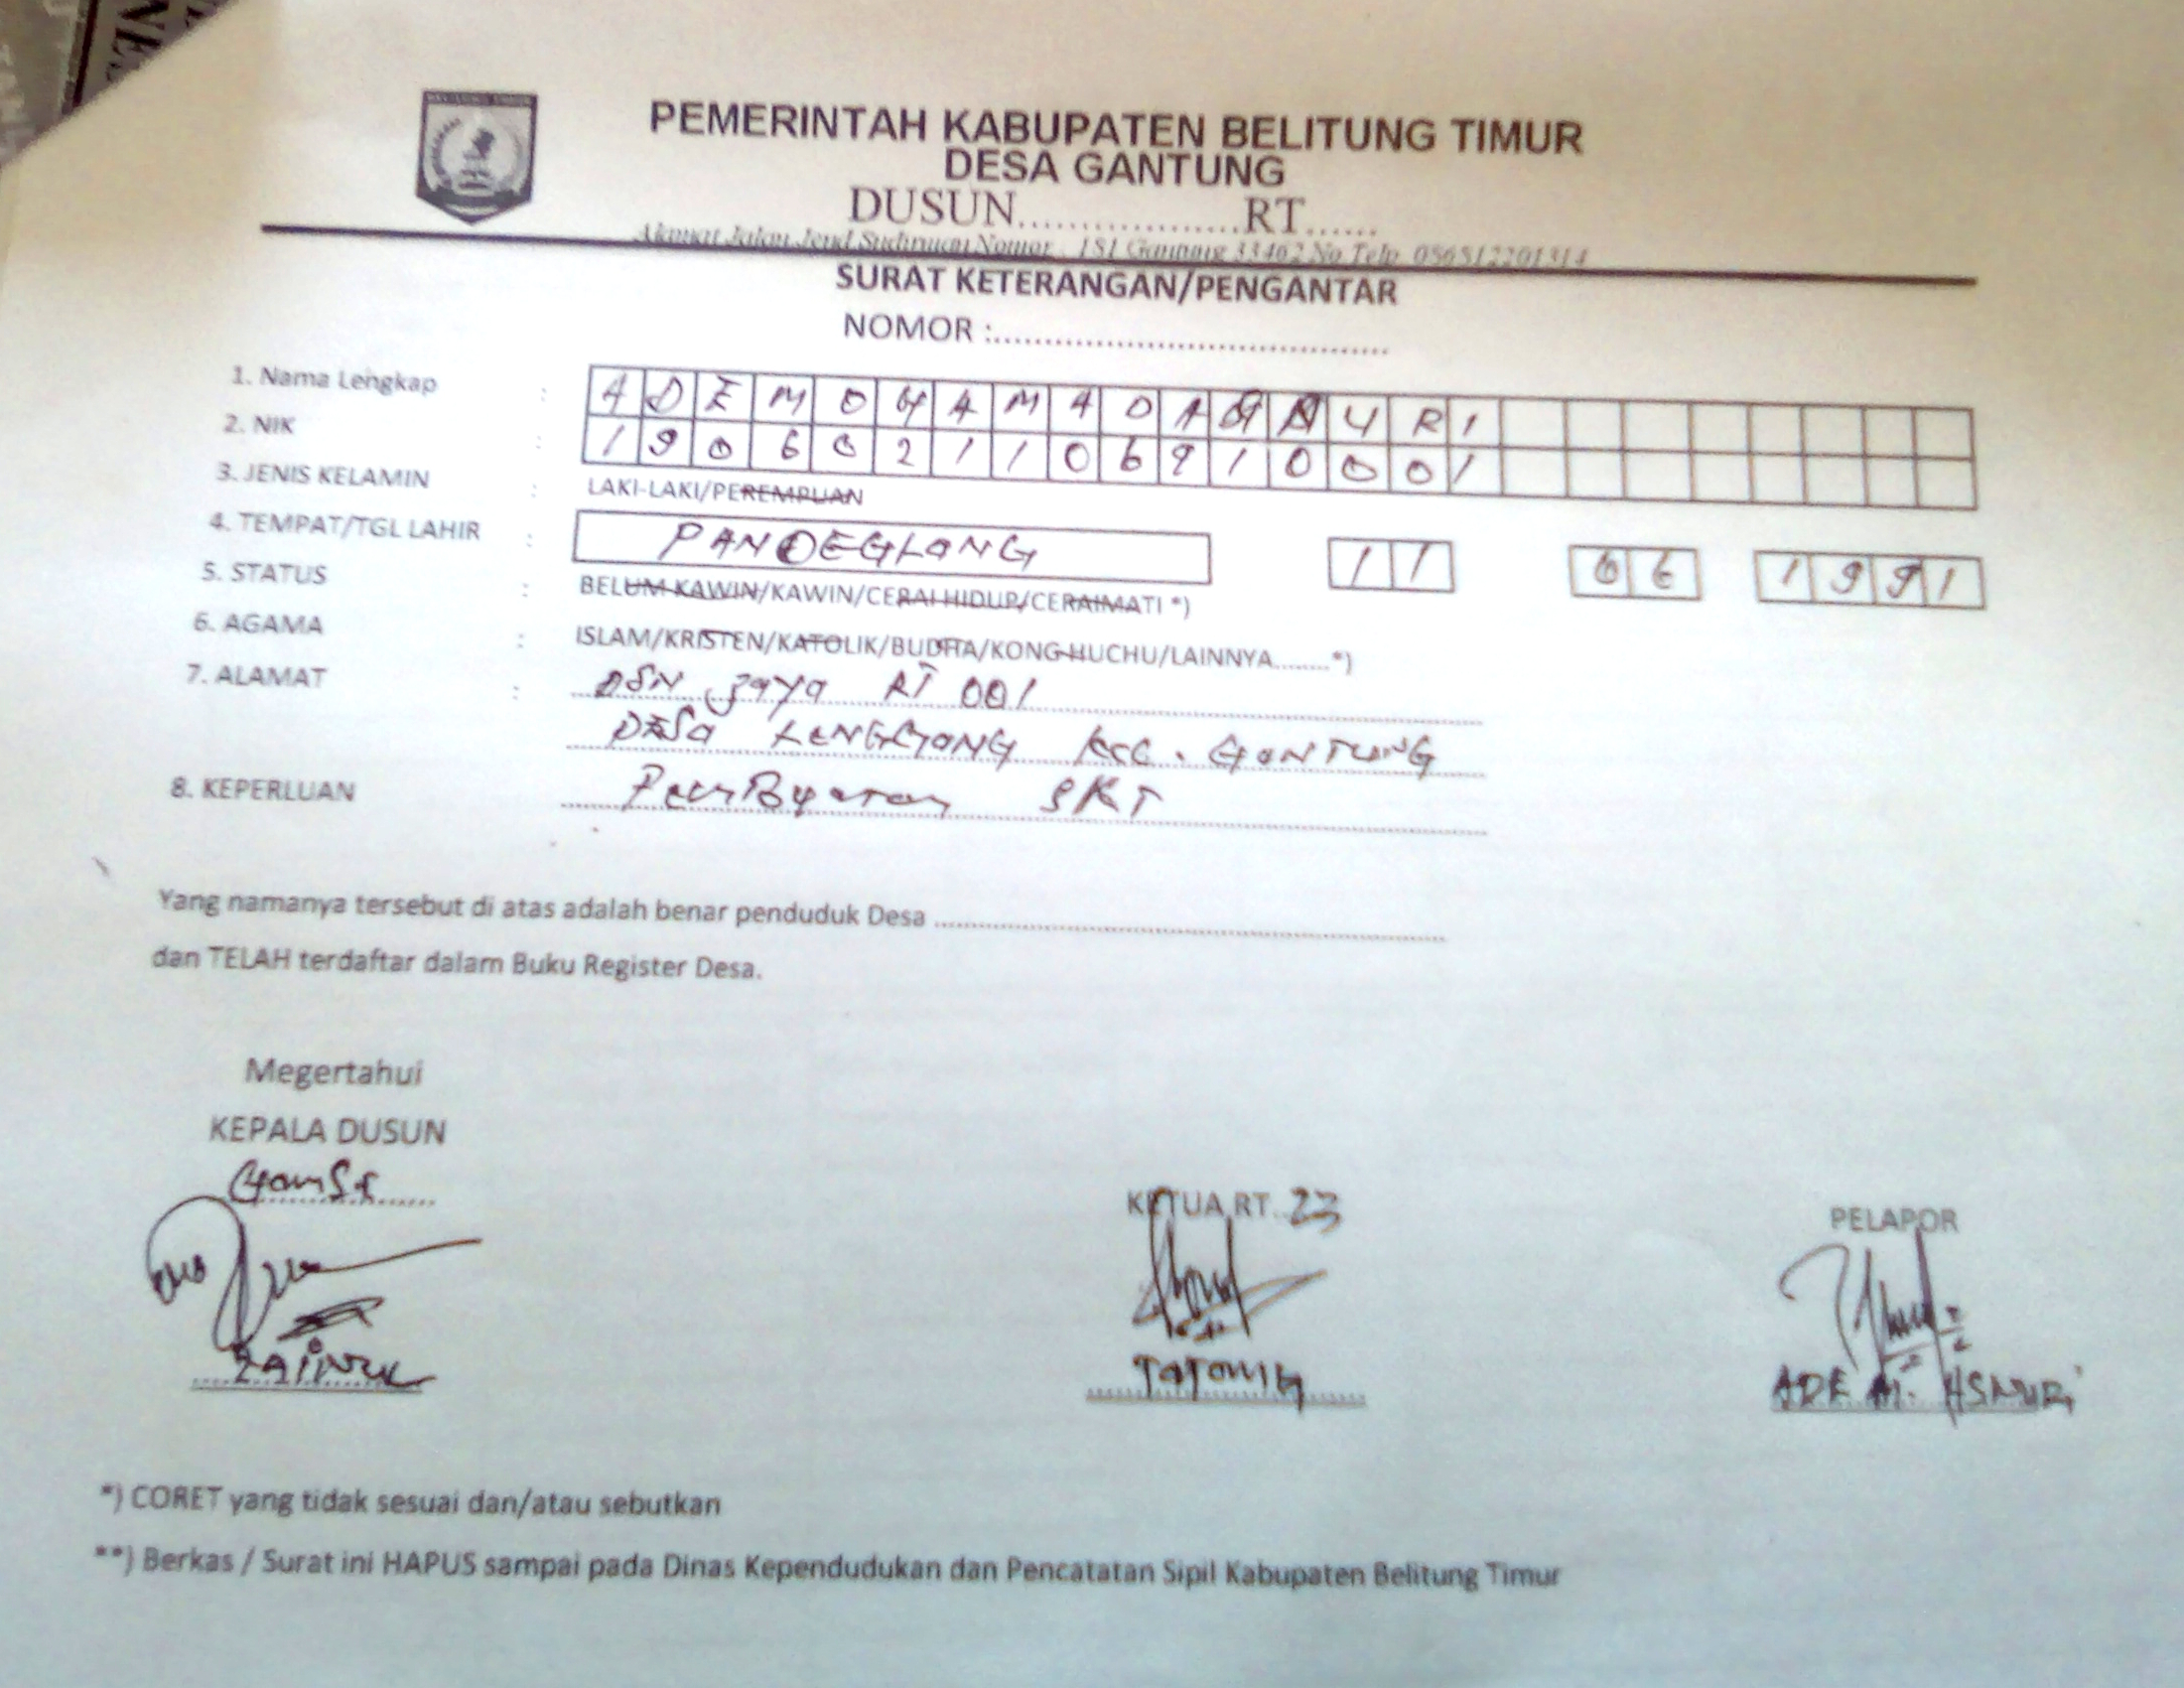 PEMERINTAH KABUPATEN BELITUNG TIMUR
DESA GANTUNG
DUSUN....................RT......
Alamat Jalan Jend Sudirman Nomor . 151 Gantung 33462 No Telp
SURAT KETERANGAN/PENGANTAR
NOMOR :..........................................
1. Nama Lengkap : ADE MOHAMAD A URI
2. NIK : 1906021106910001
3. JENIS KELAMIN : LAKI-LAKI/PEREMPUAN
4. TEMPAT/TGL LAHIR : PANDEGLANG 11 06 1991
5. STATUS : BELUM KAWIN/KAWIN/CERAI HIDUP/CERAIMATI *)
6. AGAMA : ISLAM/KRISTEN/KATOLIK/BUDHA/KONG HUCHU/LAINNYA.........*)
7. ALAMAT : DSN Jaya RT 001
DESa LENGGANG KEC. GANTUNG
8. KEPERLUAN : PemBuatan SKT
Yang namanya tersebut di atas adalah benar penduduk Desa ..........................................................
dan TELAH terdaftar dalam Buku Register Desa.
Megertahui
KEPALA DUSUN
KETUA RT. 23
PELAPOR
ZAiNUL
TATANG
ADE M. ASNURi
*) CORET yang tidak sesuai dan/atau sebutkan
**) Berkas / Surat ini HAPUS sampai pada Dinas Kependudukan dan Pencatatan Sipil Kabupaten Belitung Timur